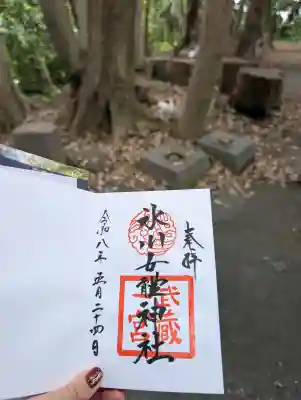 奉拝
氷川女體神社
武蔵
一宮
令和八年五月二十四日